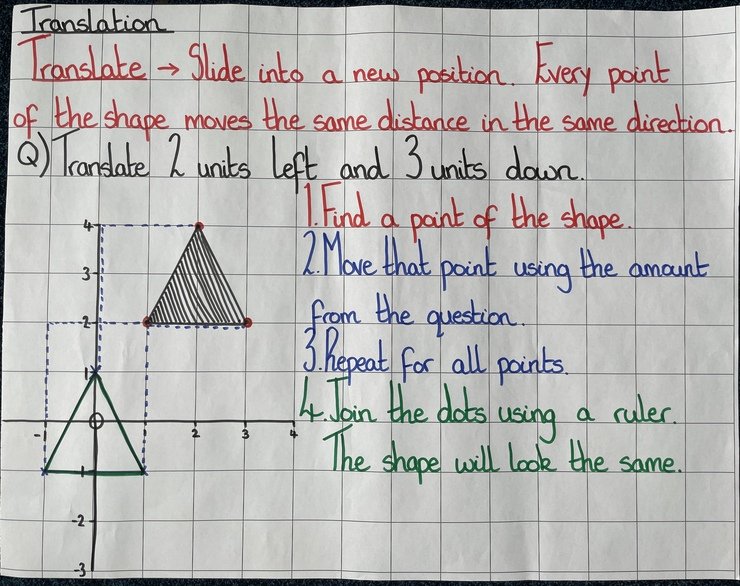 Translation
Translate → Slide into a new position. Every point
of the shape moves the same distance in the same direction.
Q) Translate 2 units left and 3 units down.
1. Find a point of the shape.
2. Move that point using the amount
from the question.
3. Repeat for all points.
4. Join the dots using a ruler.
The shape will look the same.
4
3
2
1
- 0 2 3 4
-2
-3